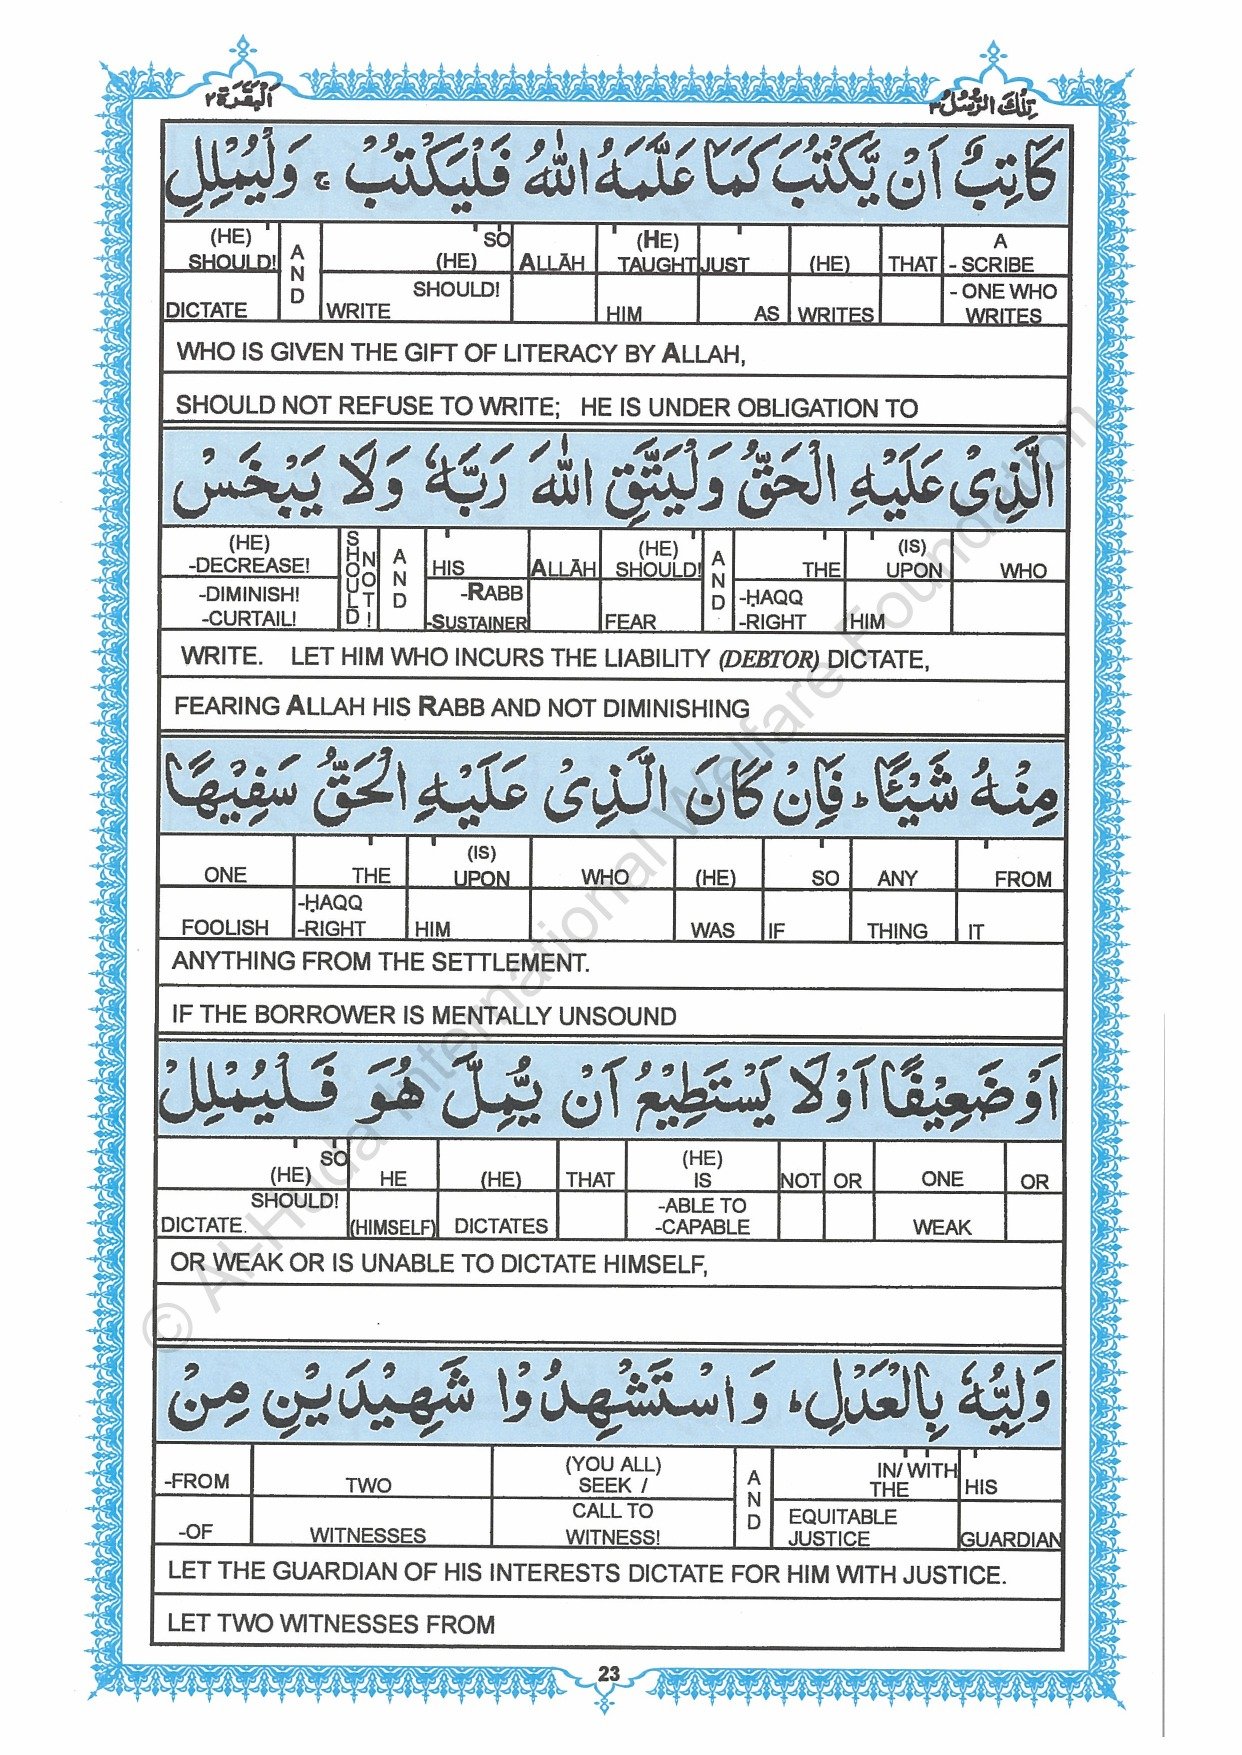 البقرة ٢
تلك الرسل ٣
كَاتِبٌ اَنْ يَّكْتُبَ كَمَا عَلَّمَهُ اللّٰهُ فَلْيَكْتُبْ ۚ وَلْيُمْلِلِ
(HE) SHOULD! AND SO (HE) ALLĀH (HE) TAUGHT JUST (HE) THAT A - SCRIBE
DICTATE WRITE SHOULD! HIM AS WRITES - ONE WHO WRITES
WHO IS GIVEN THE GIFT OF LITERACY BY ALLAH,
SHOULD NOT REFUSE TO WRITE; HE IS UNDER OBLIGATION TO
الَّذِىْ عَلَيْهِ الْحَقُّ وَلْيَتَّقِ اللّٰهَ رَبَّهٗ وَلَا يَبْخَسْ
(HE) -DECREASE! SHOULD NOT! AND HIS ALLĀH (HE) SHOULD! AND THE (IS) UPON WHO
-DIMINISH! -CURTAIL! -RABB -SUSTAINER FEAR -ḤAQQ -RIGHT HIM
WRITE. LET HIM WHO INCURS THE LIABILITY (DEBTOR) DICTATE,
FEARING ALLAH HIS RABB AND NOT DIMINISHING
مِنْهُ شَيْـًٔا ؕ فَاِنْ كَانَ الَّذِىْ عَلَيْهِ الْحَقُّ سَفِيْهًا
ONE THE (IS) UPON WHO (HE) SO ANY FROM
FOOLISH -ḤAQQ -RIGHT HIM WAS IF THING IT
ANYTHING FROM THE SETTLEMENT.
IF THE BORROWER IS MENTALLY UNSOUND
اَوْ ضَعِيْفًا اَوْ لَا يَسْتَطِيْعُ اَنْ يُّمِلَّ هُوَ فَلْيُمْلِلْ
SO (HE) HE (HE) THAT (HE) IS NOT OR ONE OR
SHOULD! DICTATE. (HIMSELF) DICTATES -ABLE TO -CAPABLE WEAK
OR WEAK OR IS UNABLE TO DICTATE HIMSELF,
وَلِيُّهٗ بِالْعَدْلِ ؕ وَاسْتَشْهِدُوْا شَهِيْدَيْنِ مِنْ
-FROM TWO (YOU ALL) SEEK / AND IN/ WITH THE HIS
-OF WITNESSES CALL TO WITNESS! EQUITABLE JUSTICE GUARDIAN
LET THE GUARDIAN OF HIS INTERESTS DICTATE FOR HIM WITH JUSTICE.
LET TWO WITNESSES FROM
23
© Al-Huda International Welfare Foundation